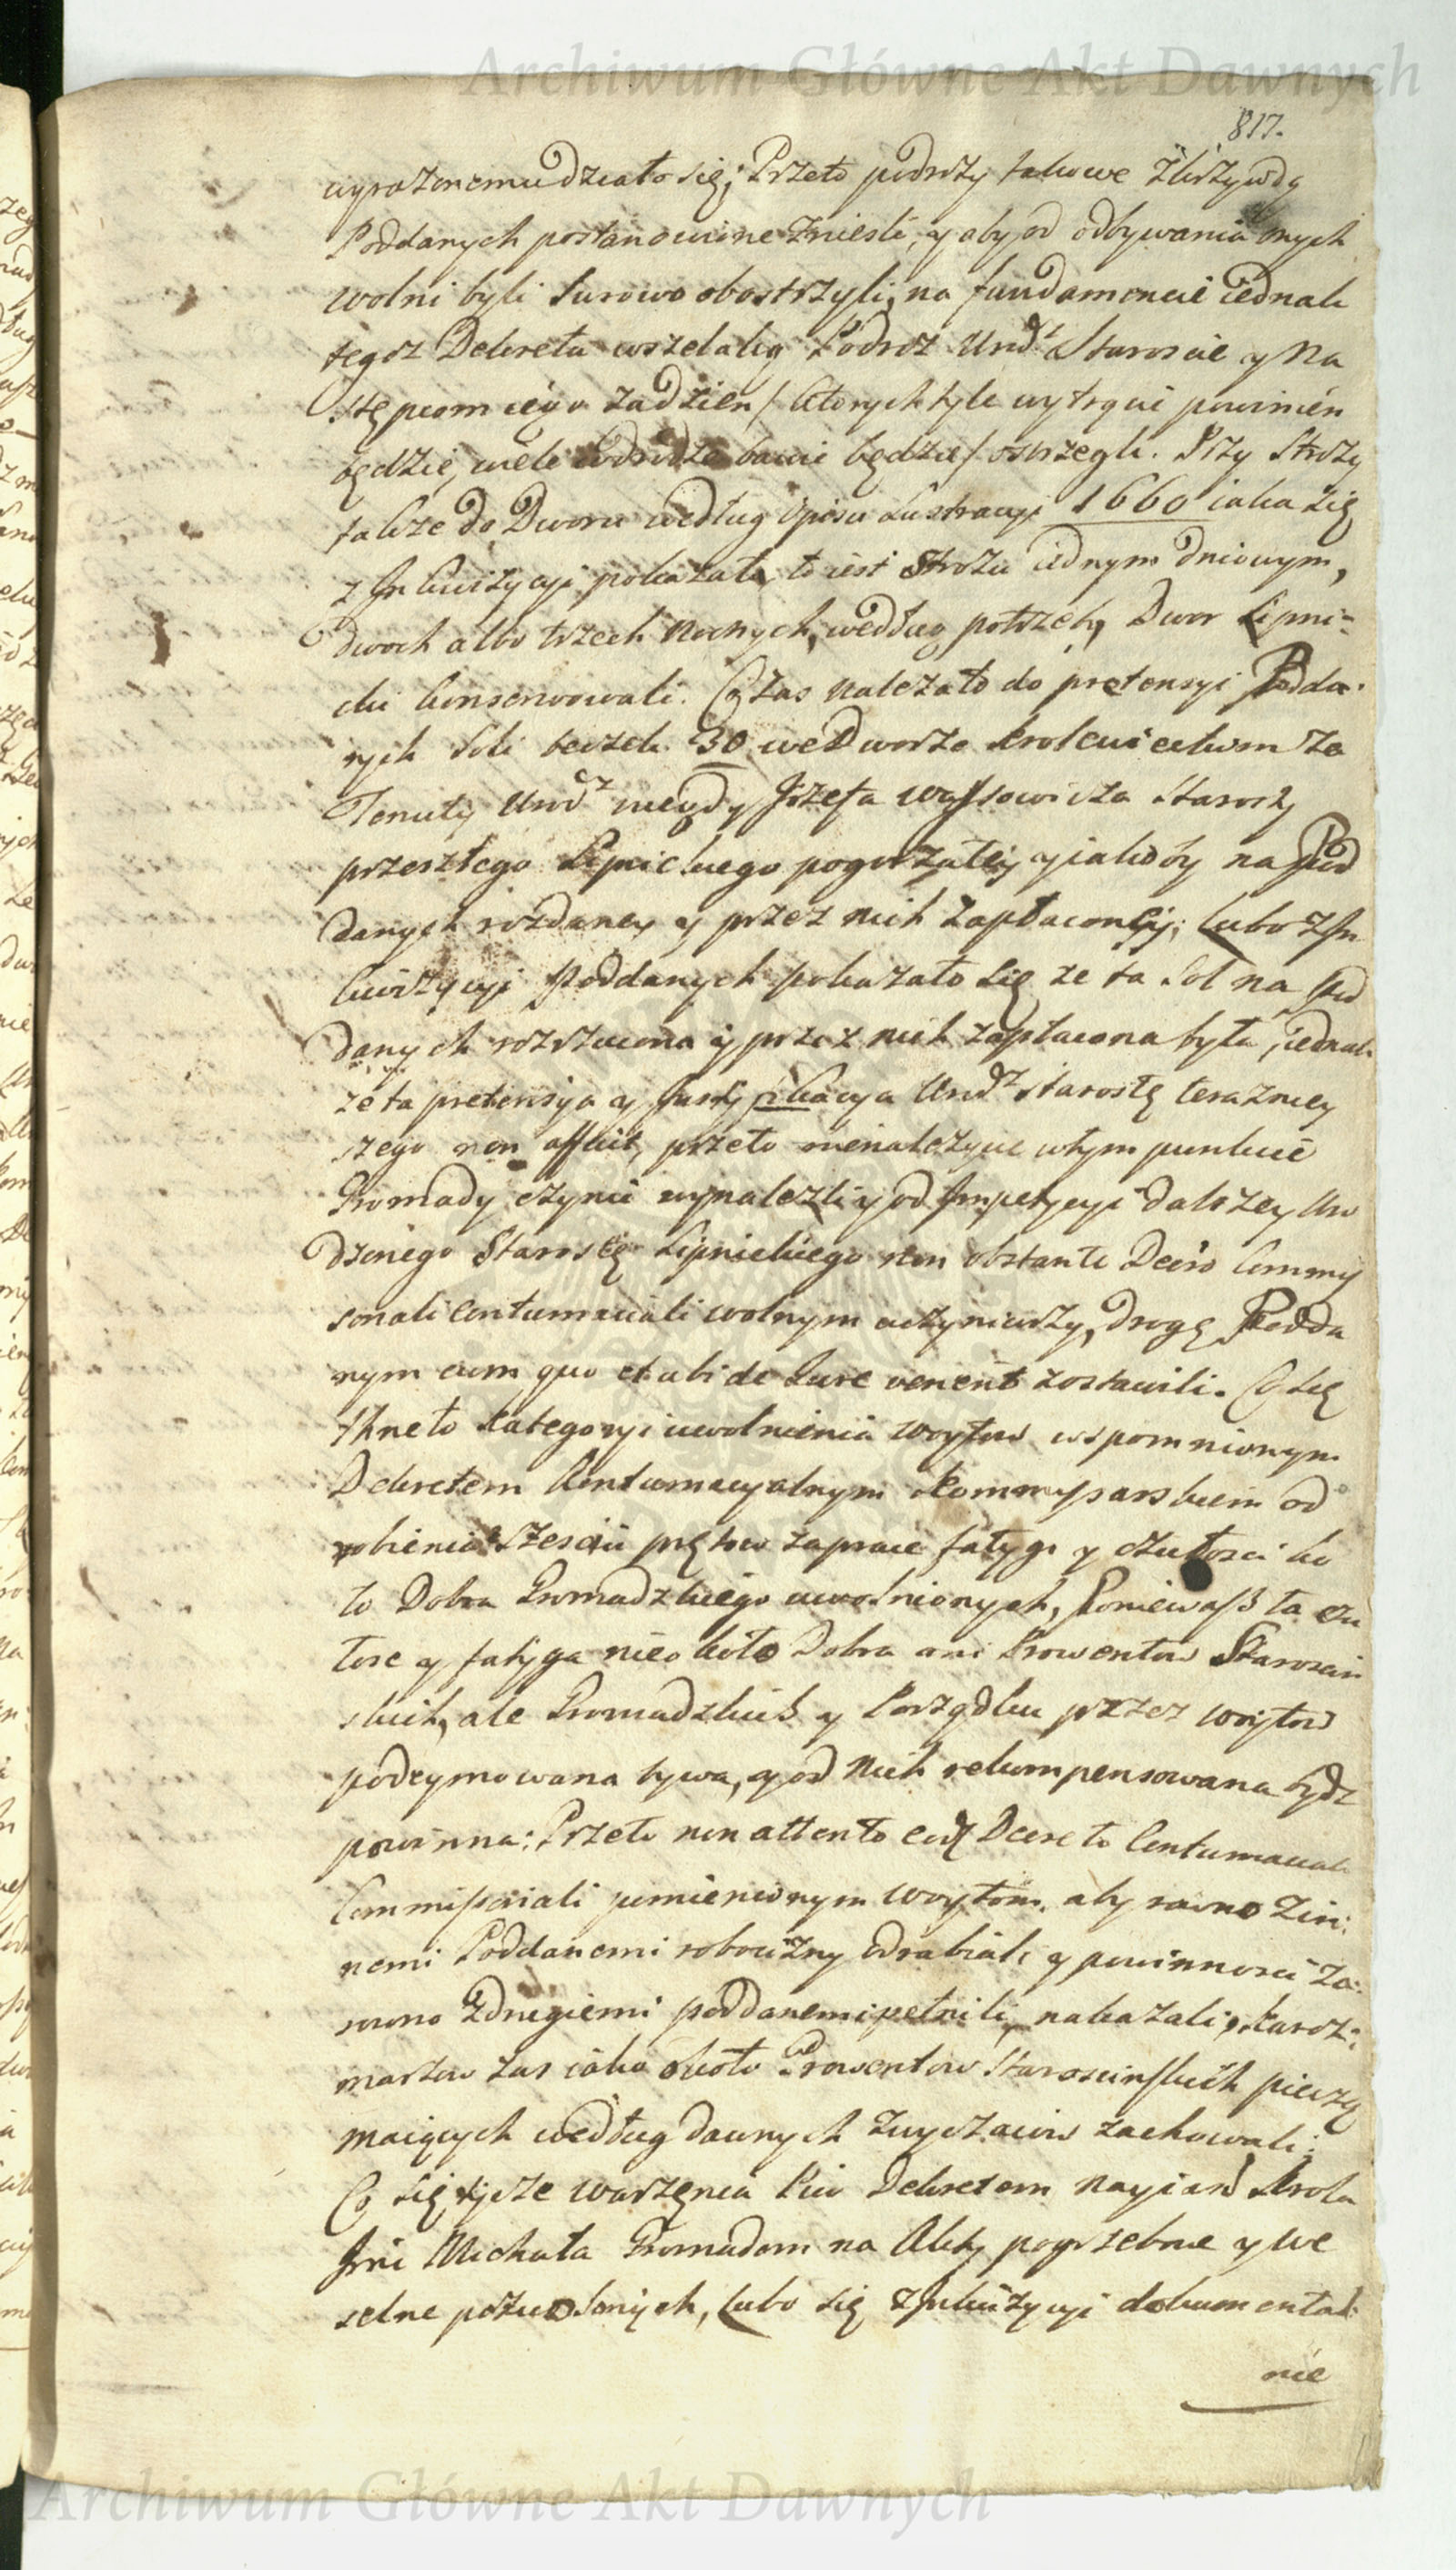 Archiwum Główne Akt Dawnych
817.
wyrazonemu działo się; Przeto podroży takowe z krzywdą
Poddanych postanowione znieśli, y aby od odbywania onych
wolni byli surowo obostrzyli, na fundamencie iednak
tegoz Dekretu wszelaką Podroż Urod: Staroscie y Na
stępcom iego za dzien / ktorych tyle wytrącić powinien
będzie, wiele w drodze bawić będzie / ostrzegli. Przy Stroży
także do Dworu według opisu Lustracyi 1660 iaka się
z Inkwizycyi pokazała, to iest Strożu iednym dniowym,
dwoch albo trzech nocnych, według potrzeby, Dwor Lipni-
cki konserwowali. Co zas należało do pretensyi Podda-
nych Soli beczek 30 we Dworze Krolewieckim za
Tenuty Urodz niegdy Jozefa Wąssowicza Starosty
przeszłego Lipnickiego pogorzałey, y iakoby na Pod
danych rozdaney y przez nich zapłaconey; lubo z In
kwizycyi Poddanych pokazało się ze ta Sol na Pod
danych rozrzucona y przez nich zapłacona była, iednak
ze ta pretensya y Justyfikacya Urodz Starostę terazniey
szego non afficit, przeto nienależycie w tym punkcie
Gromady czynić wynalezli, y od Impetycyi dalszey Uro
dzonego Starostę Lipnickiego non obstante Decro Commis
sonali Contumaciali wolnym uczyniwszy, drogę Podda
nym cum quo et ubi de Jure venerit zostawili. Co się
tkneło kategoryi uwolnienia woytow wspomnionym
Dekretem kontumacyalnym Kommyssarskiem od
robienia szesciu prętow za prace fatygi y czułosci ko
ło Dobra Gromadzkiego uwolnionych, Poniewasz ta czu
łosc y fatyga nie około Dobra ani Prowentow Staroscin
skich, ale Gromadzkich y Porządku przez woytow
podeymowana bywa, y od nich rekumpensowana bydz
powinna: Przeto non attento eod Decreto Contumaciali
Commissoriali pomienionym woytom, aby rowno z in:
nemi Poddanemi robocizny odrabiali y powinnosci za:
rowno z drugiemi poddanemi pełnili, nakazali, Karcz:
marzow zas iako około Prowentow Staroscinskich pieczą
maiących według dawnych zwyczaiow zachowali:
Co się tycze warzenia Piw Dekretem Nayiasn Krola
Jmci Michała Gromadom na Akty pogrzebne y we
selne pozwolonych, lubo się z Inkwizycyi dokumental
nie
Archiwum Główne Akt Dawnych